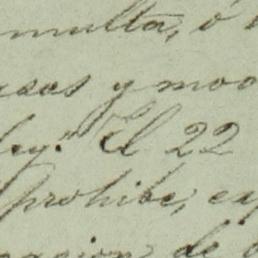 multa, ó
usos y mod
ley." El 22
prohibe, ex
de